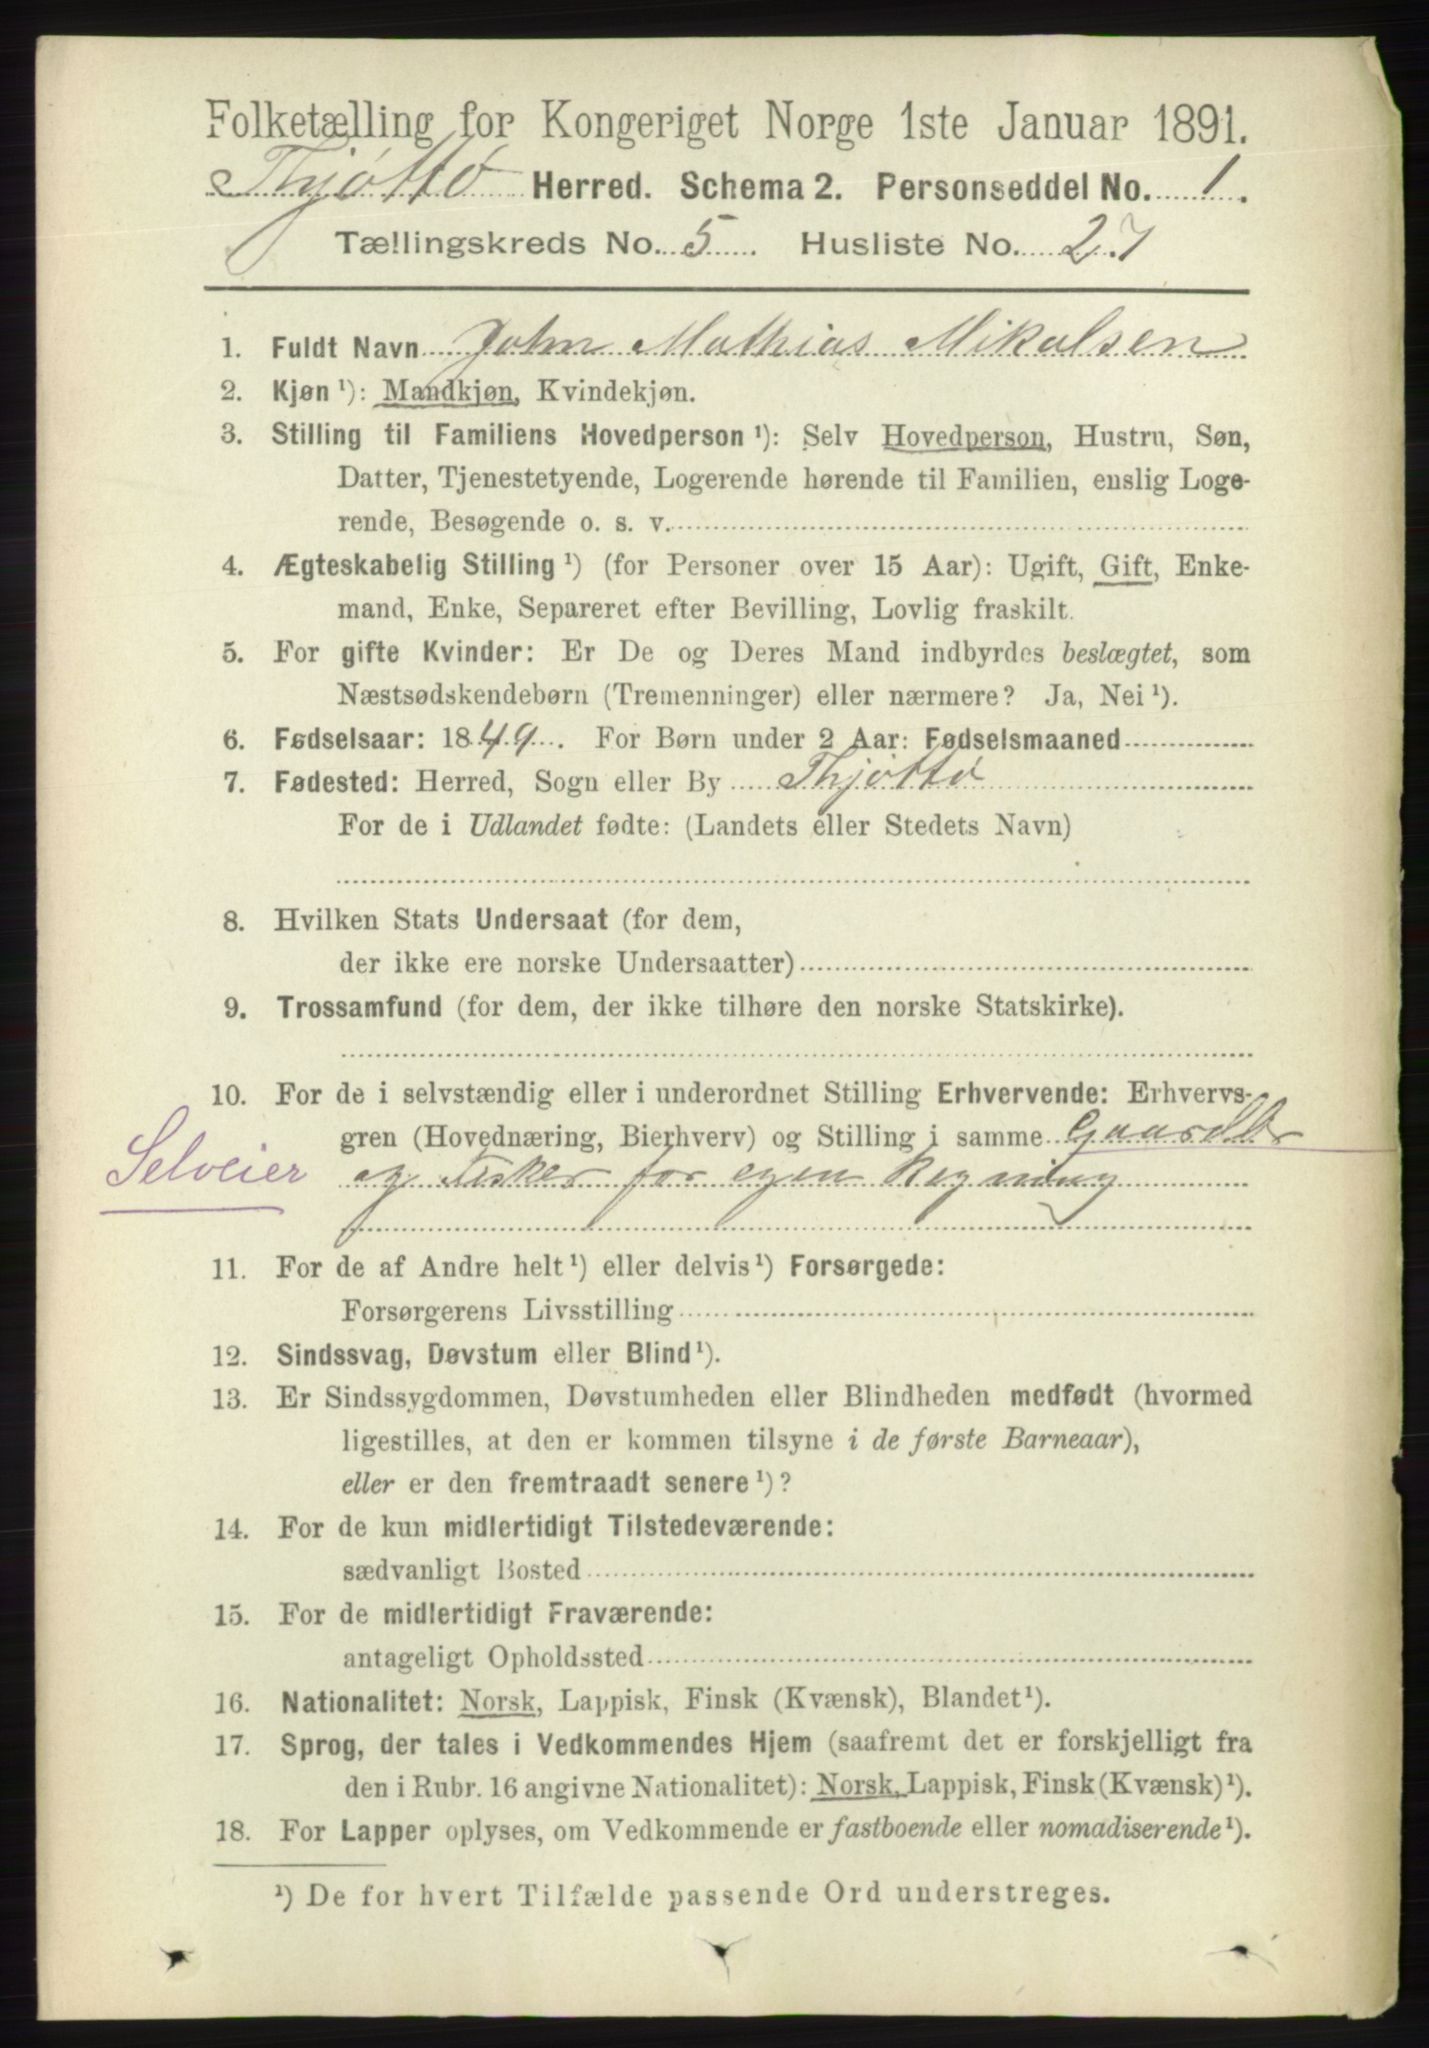 Folketælling for Kongeriget Norge 1ste Januar 1891.
Thjøttø Herred. Schema 2. Personseddel No. 1.
Tællingskreds No. 5. Husliste No. 27
1. Fuldt Navn John Mathias Mikalsen
2. Kjøn ¹): Mandkjøn, Kvindekjøn.
3. Stilling til Familiens Hovedperson ¹): Selv Hovedperson, Hustru, Søn,
Datter, Tjenestetyende, Logerende hørende til Familien, enslig Loge-
rende, Besøgende o. s. v.
4. Ægteskabelig Stilling ¹) (for Personer over 15 Aar): Ugift, Gift, Enke-
mand, Enke, Separeret efter Bevilling, Lovlig fraskilt.
5. For gifte Kvinder: Er De og Deres Mand indbyrdes beslægtet, som
Næstsødskendebørn (Tremenninger) eller nærmere? Ja, Nei ¹).
6. Fødselsaar: 1849. For Børn under 2 Aar: Fødselsmaaned
7. Fødested: Herred, Sogn eller By Thjøttø
For de i Udlandet fødte: (Landets eller Stedets Navn)
8. Hvilken Stats Undersaat (for dem,
der ikke ere norske Undersaatter)
9. Trossamfund (for dem, der ikke tilhøre den norske Statskirke).
10. For de i selvstændig eller i underordnet Stilling Erhvervende: Erhvervs-
gren (Hovednæring, Bierhverv) og Stilling i samme Gaardbr
Selveier og Fisker for egen Regning
11. For de af Andre helt ¹) eller delvis ¹) Forsørgede:
Forsørgerens Livsstilling
12. Sindssvag, Døvstum eller Blind ¹).
13. Er Sindssygdommen, Døvstumheden eller Blindheden medfødt (hvormed
ligestilles, at den er kommen tilsyne i de første Barneaar),
eller er den fremtraadt senere ¹)?
14. For de kun midlertidigt Tilstedeværende:
sædvanligt Bosted
15. For de midlertidigt Fraværende:
antageligt Opholdssted
16. Nationalitet: Norsk, Lappisk, Finsk (Kvænsk), Blandet ¹).
17. Sprog, der tales i Vedkommendes Hjem (saafremt det er forskjelligt fra
den i Rubr. 16 angivne Nationalitet): Norsk, Lappisk, Finsk (Kvænsk) ¹).
18. For Lapper oplyses, om Vedkommende er fastboende eller nomadiserende ¹).
¹) De for hvert Tilfælde passende Ord understreges.